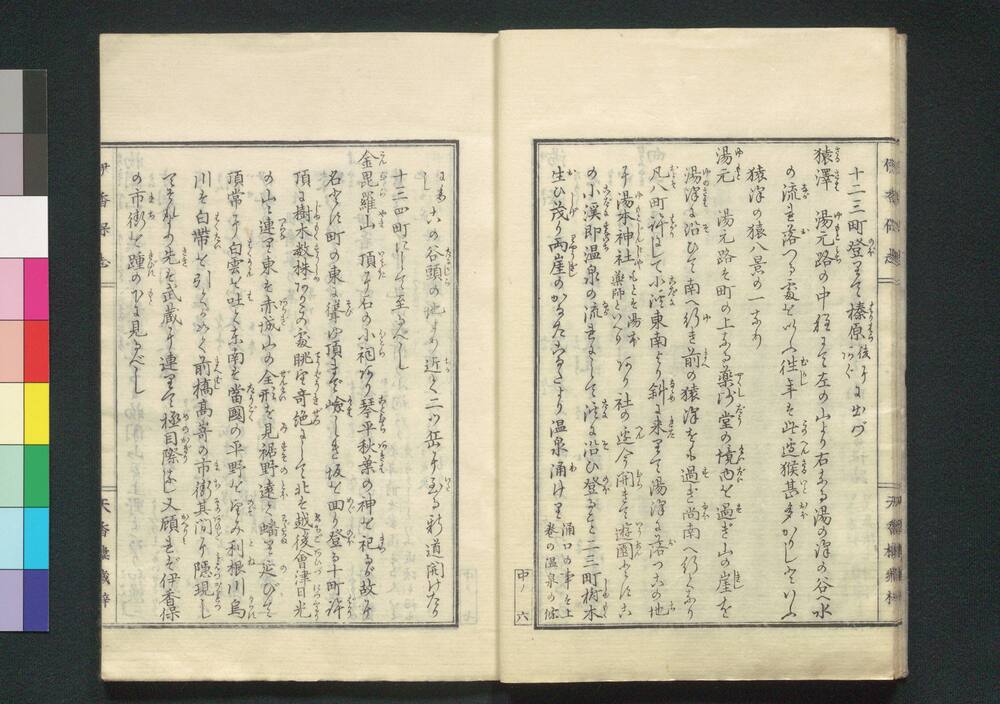 十二三町登りて榛原後リに出づ
猿澤　湯元路の中程にて左の山より右なる湯の澤の谷へ水
の流れ落つる處をいふ往年は此邊猴甚多かりしといふ
猿澤の猿八景の一なり
湯元　湯元路を町の上なる藥師堂の境内を過ぎ山の崖を
湯澤に沿ひて南へ行き前の猿澤をも過ぎ尚南へ行くなり
凡八町許にして小溪東南より斜に来りて湯澤に落つこの地
に湯本神社もとは湯本藥師といへりあり社の邊今開きて遊園とせりこ
の小溪即温泉の流れにして渓に沿ひ登ること二三町樹木
生ひ茂り両崖のかなたこなたより温泉涌けり涌口の事は上巻の温泉の條
中ノ六
にありこの谷頭の地より近く二ツ岳にいたる新道開けたり
十三四町にして至るべし
金毘羅山　頂に石の小祠あり琴平秋葉の神を祀るが故に
名とす町の東に聳ゆ頂まで嶮しき坂を回り登る十町許
頂に樹木数株あり此處眺望奇絶にして北は越後會津日光
の山に連り東は赤城山の全形を見裾野遠く蟠り延びて
頂常に白雲を吐く東南は當國の平野を望み利根川烏
川を白帶を引くがごとく前橋高崎の市街其間に隠現し
てそれより先は武蔵に連りて極目際なし又顧れば伊香保
の市街を踵のもとに見るべし
伊香保志